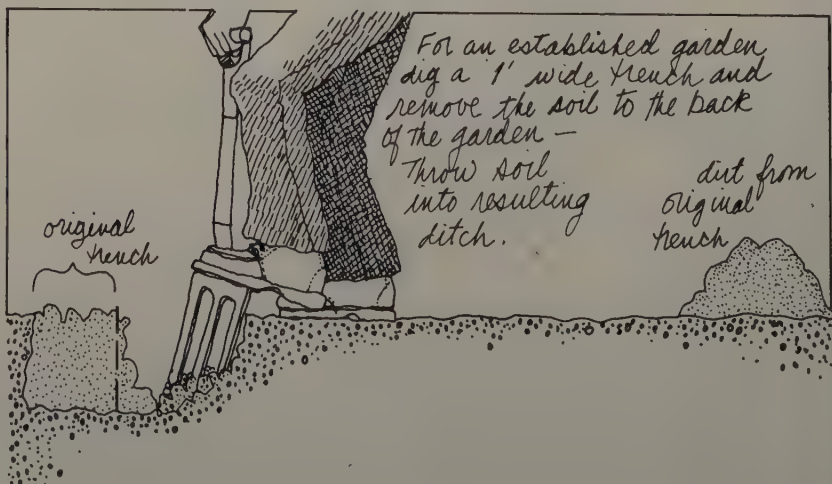 For an established garden
dig a 1' wide trench and
remove the soil to the back
of the garden —
Throw soil
into resulting
ditch.
dirt from
original
trench
original
trench